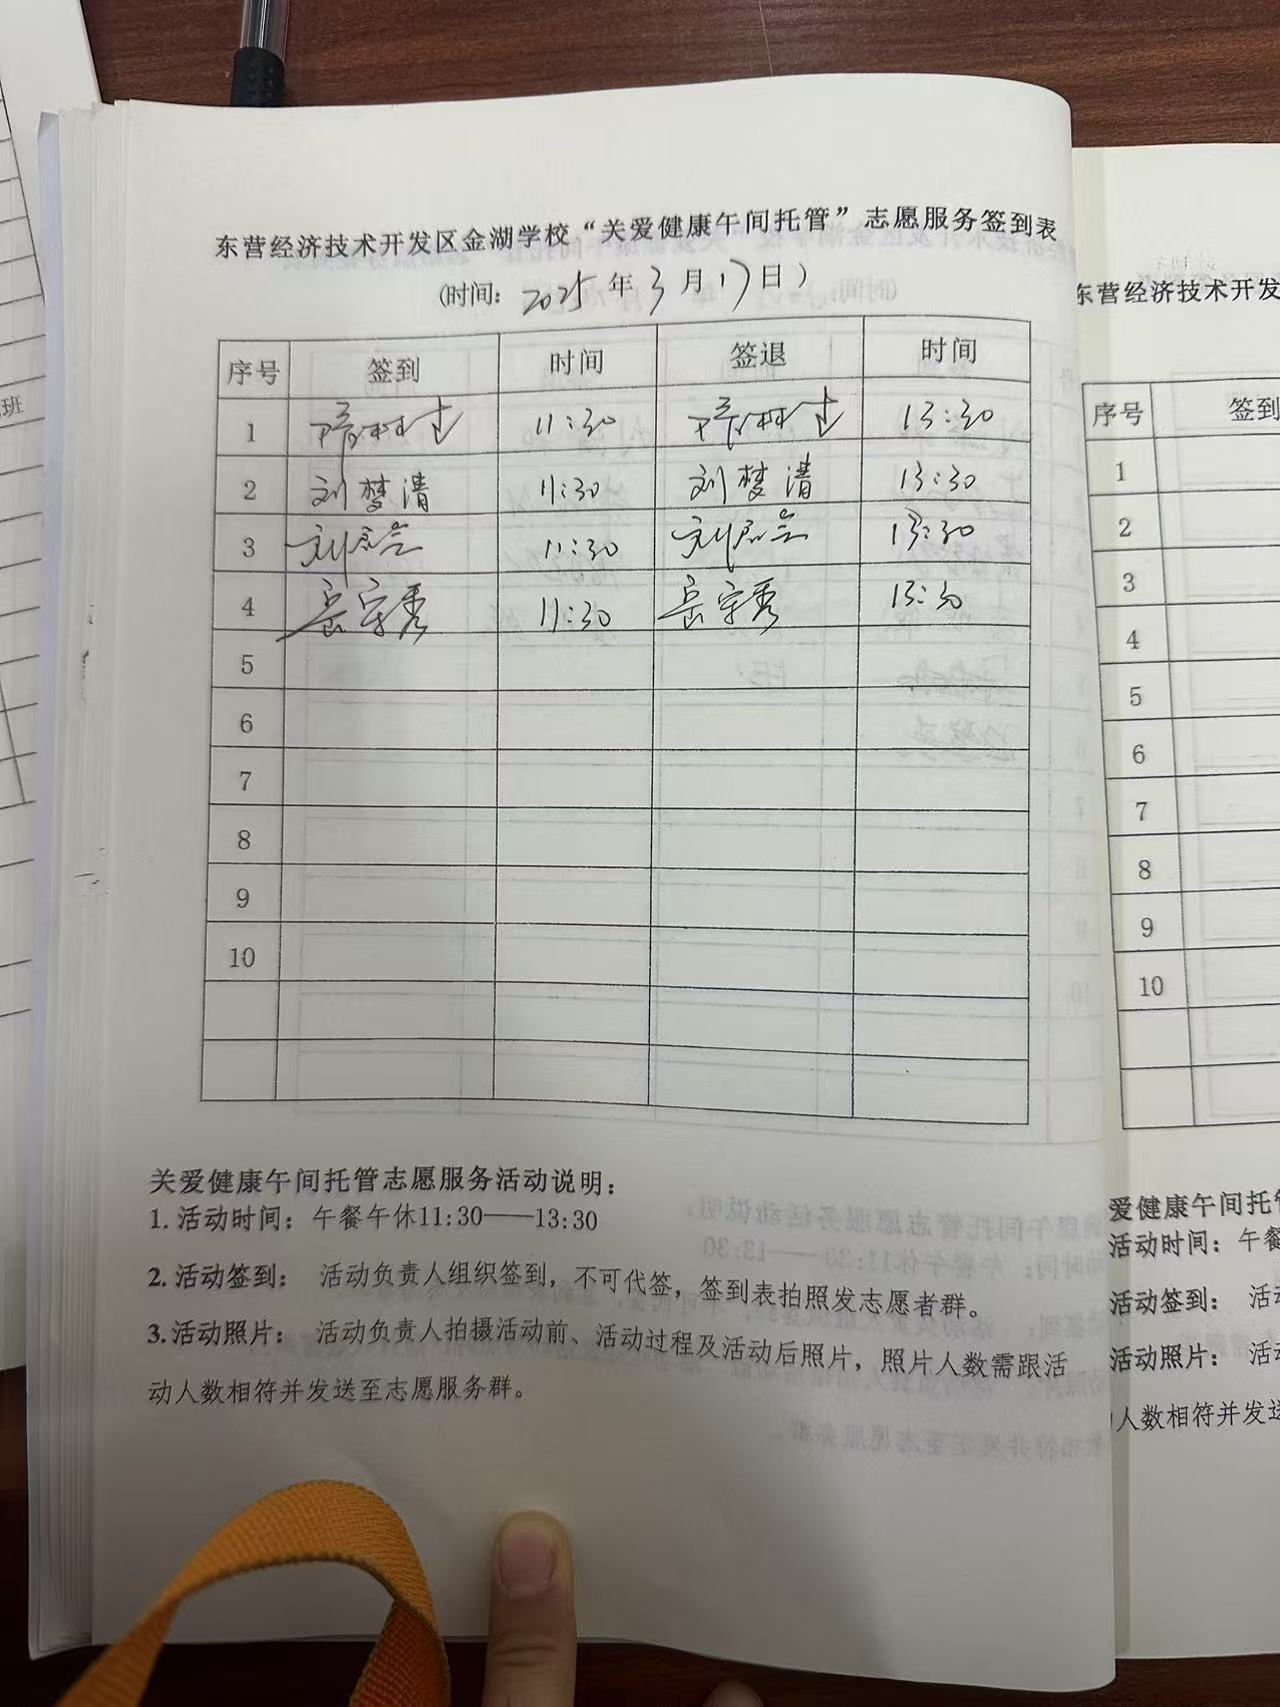 东营经济技术开发区金湖学校“关爱健康午间托管”志愿服务签到表
(时间: 2025 年 3 月 17 日)
序号 签到 时间 签退 时间
1 11:30 13:30
2 刘梦清 11:30 刘梦清 13:30
3 11:30 13:30
4 岳宗秀 11:30 岳宗秀 13:30
5
6
7
8
9
10
关爱健康午间托管志愿服务活动说明:
1.活动时间: 午餐午休11:30——13:30
2.活动签到: 活动负责人组织签到,不可代签,签到表拍照发志愿者群。
3.活动照片: 活动负责人拍摄活动前、活动过程及活动后照片,照片人数需跟活
动人数相符并发送至志愿服务群。
班
东营经济技术开发
序号 签到
1
2
3
4
5
6
7
8
9
10
爱健康午间托
活动时间: 午餐
活动签到: 活
活动照片: 活
人数相符并发送